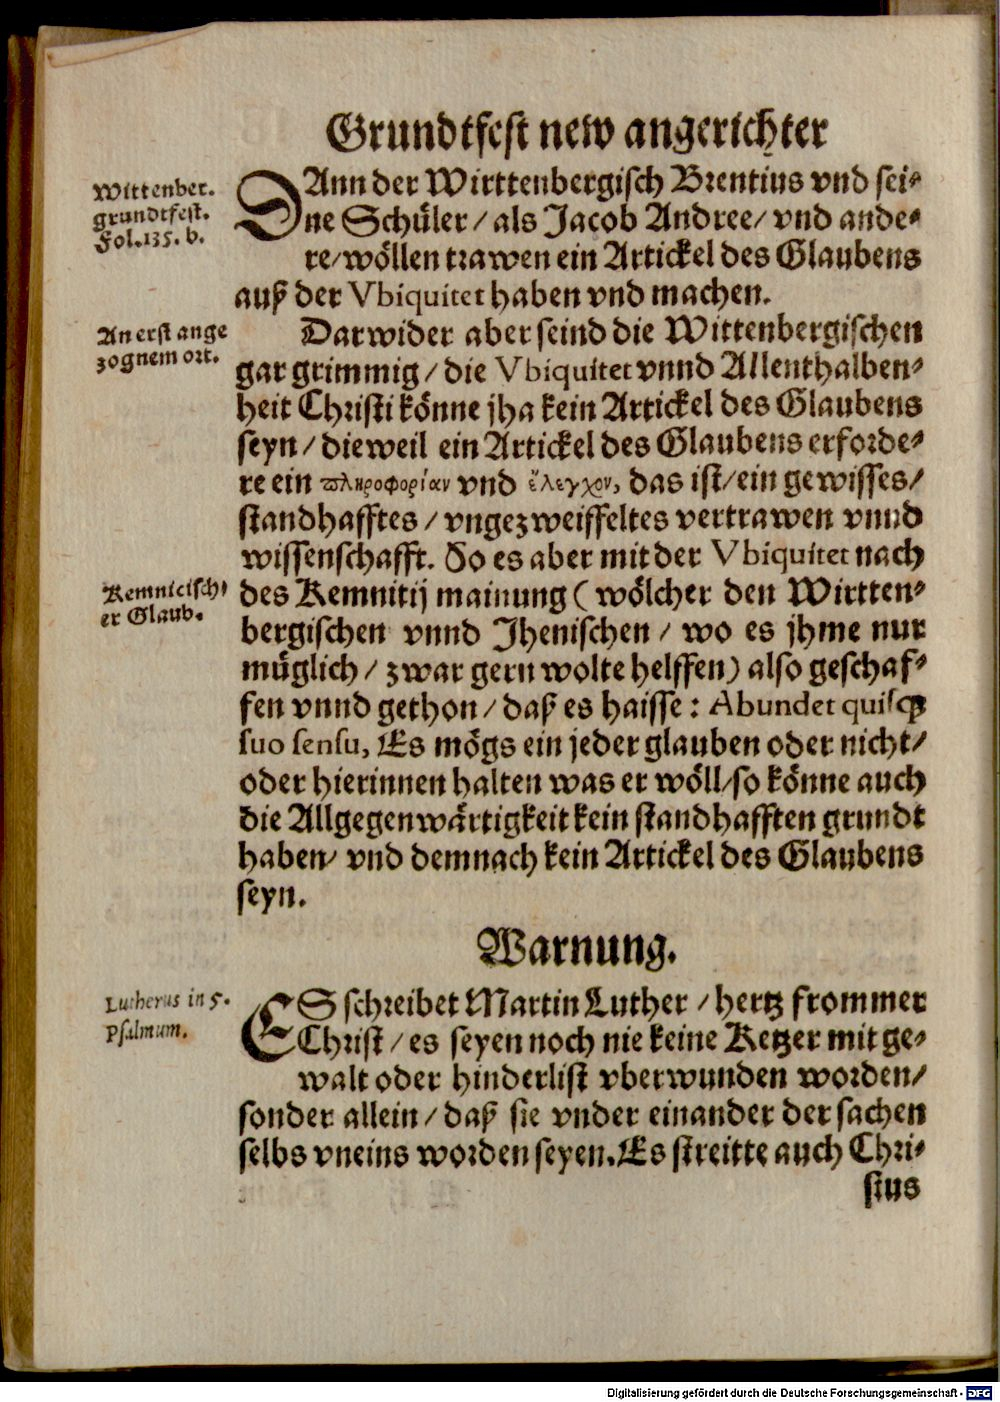 Grundtfest new angerichter
Wittenber.
grundtfest.
Fol.135. b.
DAnn der Wirttenbergisch Brentius vnd sei-
ne Schüler / als Jacob Andree / vnd ande-
re / wöllen trawen ein Artickel des Glaubens
auß der Vbiquitet haben vnd machen.
An erst ange
zognem ort.
Darwider aber seind die Wittenbergischen
gar grimmig / die Vbiquitet vnnd Allenthalben-
heit Christi könne jha kein Artickel des Glaubens
seyn / dieweil ein Artickel des Glaubens erforde-
re ein πληροφορίαν vnd ἔλεγχον, das ist / ein gewisses /
standhafftes / vngezweiffeltes vertrawen vnnd
wissenschafft. So es aber mit der Vbiquitet nach
Kemnicisch-
er Glaub.
des Kemnitij mainung ( wölcher den Wirtten-
bergischen vnnd Jhenischen / wo es jhme nur
müglich / zwar gern wolte helffen) also geschaf-
fen vnnd gethon / daß es haisse : Abundet quisq;
suo sensu, Es mögs ein jeder glauben oder nicht /
oder hierinnen halten was er wöll / so könne auch
die Allgegenwärtigkeit kein standhafften grundt
haben / vnd demnach kein Artickel des Glaubens
seyn.
Warnung.
Lutherus in 5.
Psalmum.
ES schreibet Martin Luther / hertz frommer
Christ / es seyen noch nie keine Ketzer mit ge-
walt oder hinderlist vberwunden worden /
sonder allein / daß sie vnder einander der sachen
selbs vneins worden seyen. Es streitte auch Chri-
stus
Digitalisierung gefördert durch die Deutsche Forschungsgemeinschaft - DFG